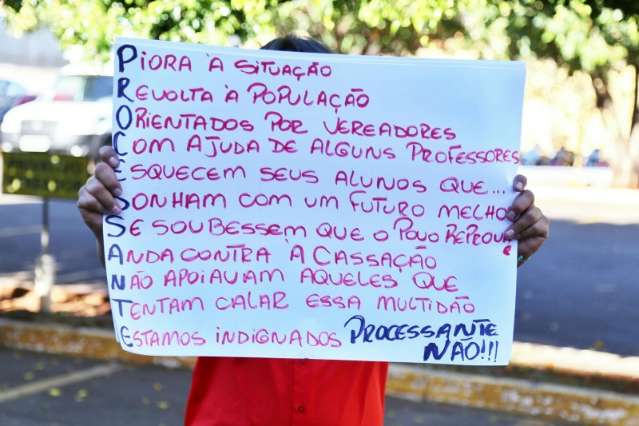 PIORA À SITUAÇÃO
REVOLTA À POPULAÇÃO
ORIENTADOS POR VEREADORES
COM AJUDA DE ALGUNS PROFESSORES
ESQUECEM SEUS ALUNOS QUE...
SONHAM COM UM FUTURO MELHO
SE SOUBESSEM QUE O POVO REPROVA
ANDA CONTRA À CASSAÇÃO
NÃO APOIAVAM AQUELES QUE
TENTAM CALAR ESSA MULTIDÃO
ESTAMOS INDIGNADOS PROCESSANTE
NÃO!!!